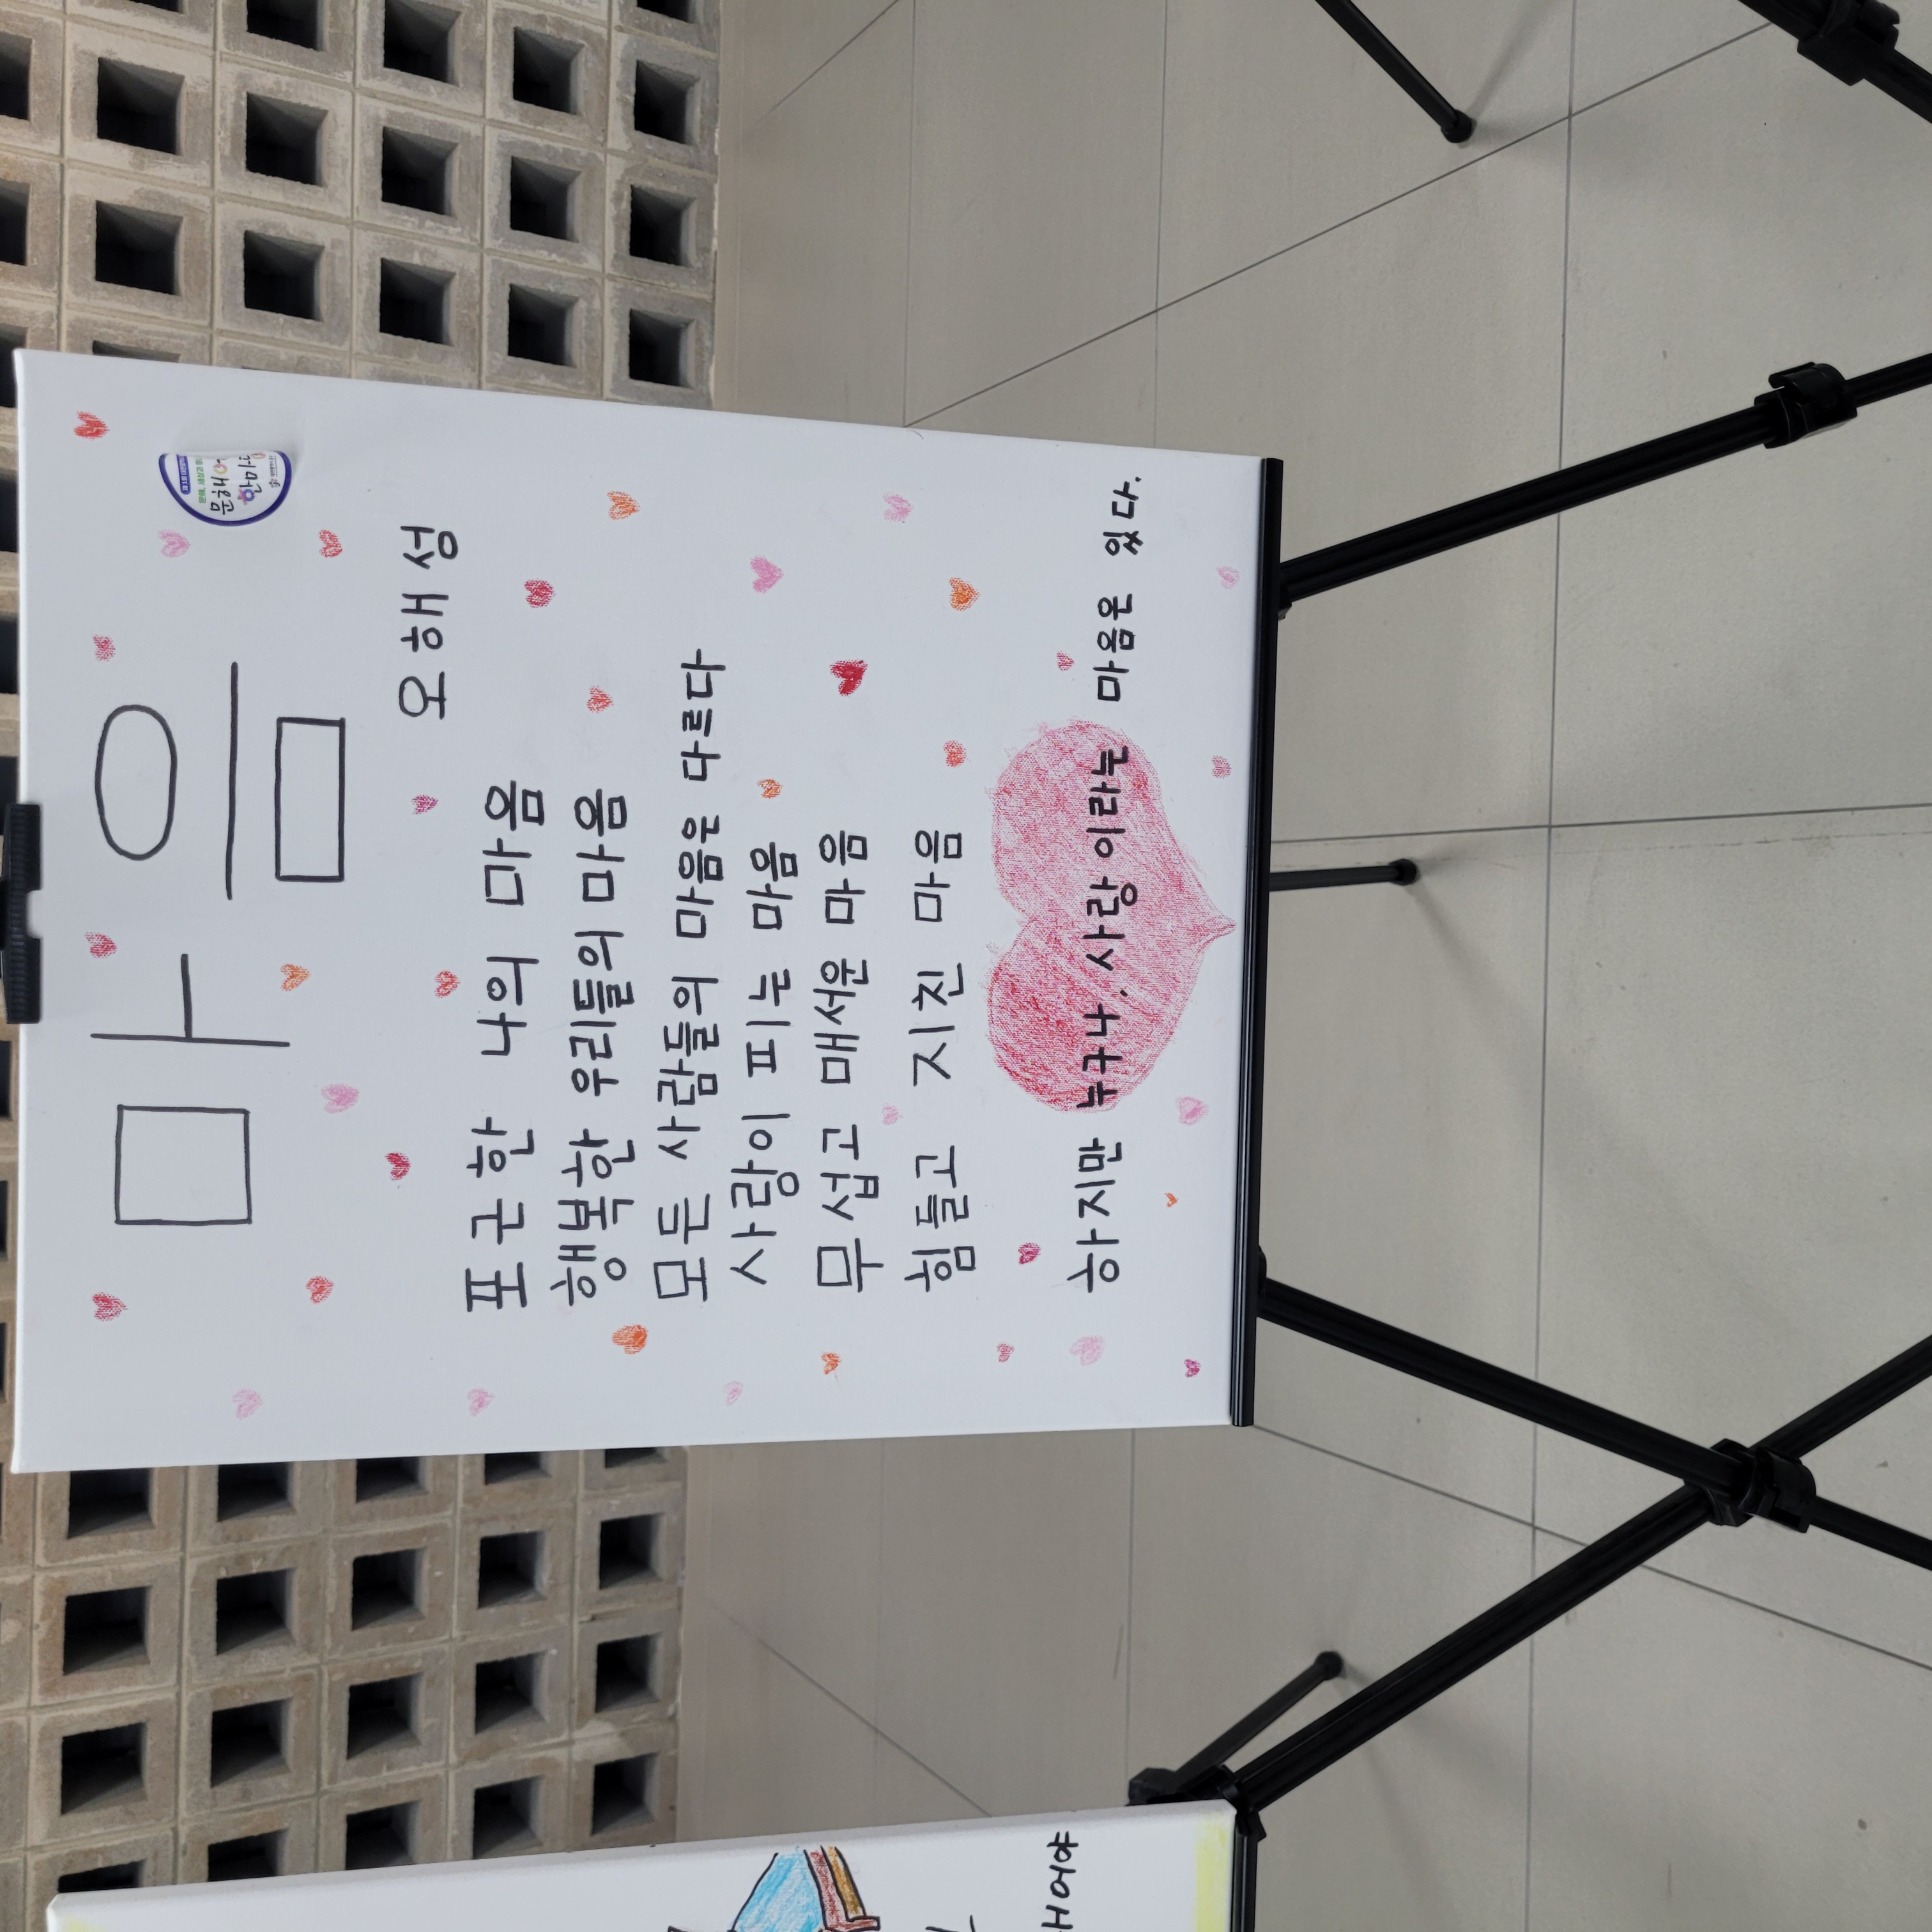 마음
오해성
포근한 나의 마음
행복한 우리들의 마음
모든 사람들의 마음은 다르다
사랑이 피는 마음
무섭고 매서운 마음
힘들고 지친 마음
하지만 누구나. 사랑이라는 마음은 있다.
문해
한마